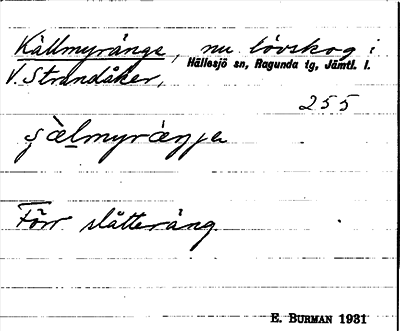 Källmyränge, nu lövskog i
Hällesjö sn, Ragunda tg, Jämtl. l.
V. Strandåker,
255
Förr slåtteräng
E. BURMAN 1931